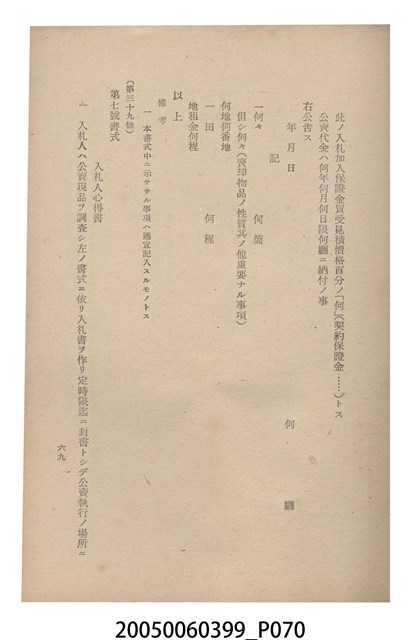 此ノ入札加入保證金買受見積價格百分ノ「何」(契約保證金……)トス
公賣代金ハ何年何月何日限何廳ニ納付ノ事
右公告ス
年 月 日
何 廳
記
一何々 何箇
但シ何々(賣却物品ノ性質其ノ他重要ナル事項)
何地何番地
一田 何程
地租金何程
以上
備考
一 本書式中ニ示ササル事項ハ適宜記入スルモノトス
(第三十九條)
第七號書式
入札人心得書
一 入札人ハ公賣現品ヲ調査シ左ノ書式ニ依リ入札書ヲ作リ定時限迄ニ封書トシテ公賣執行ノ場所ニ
六九
20050060399_P070